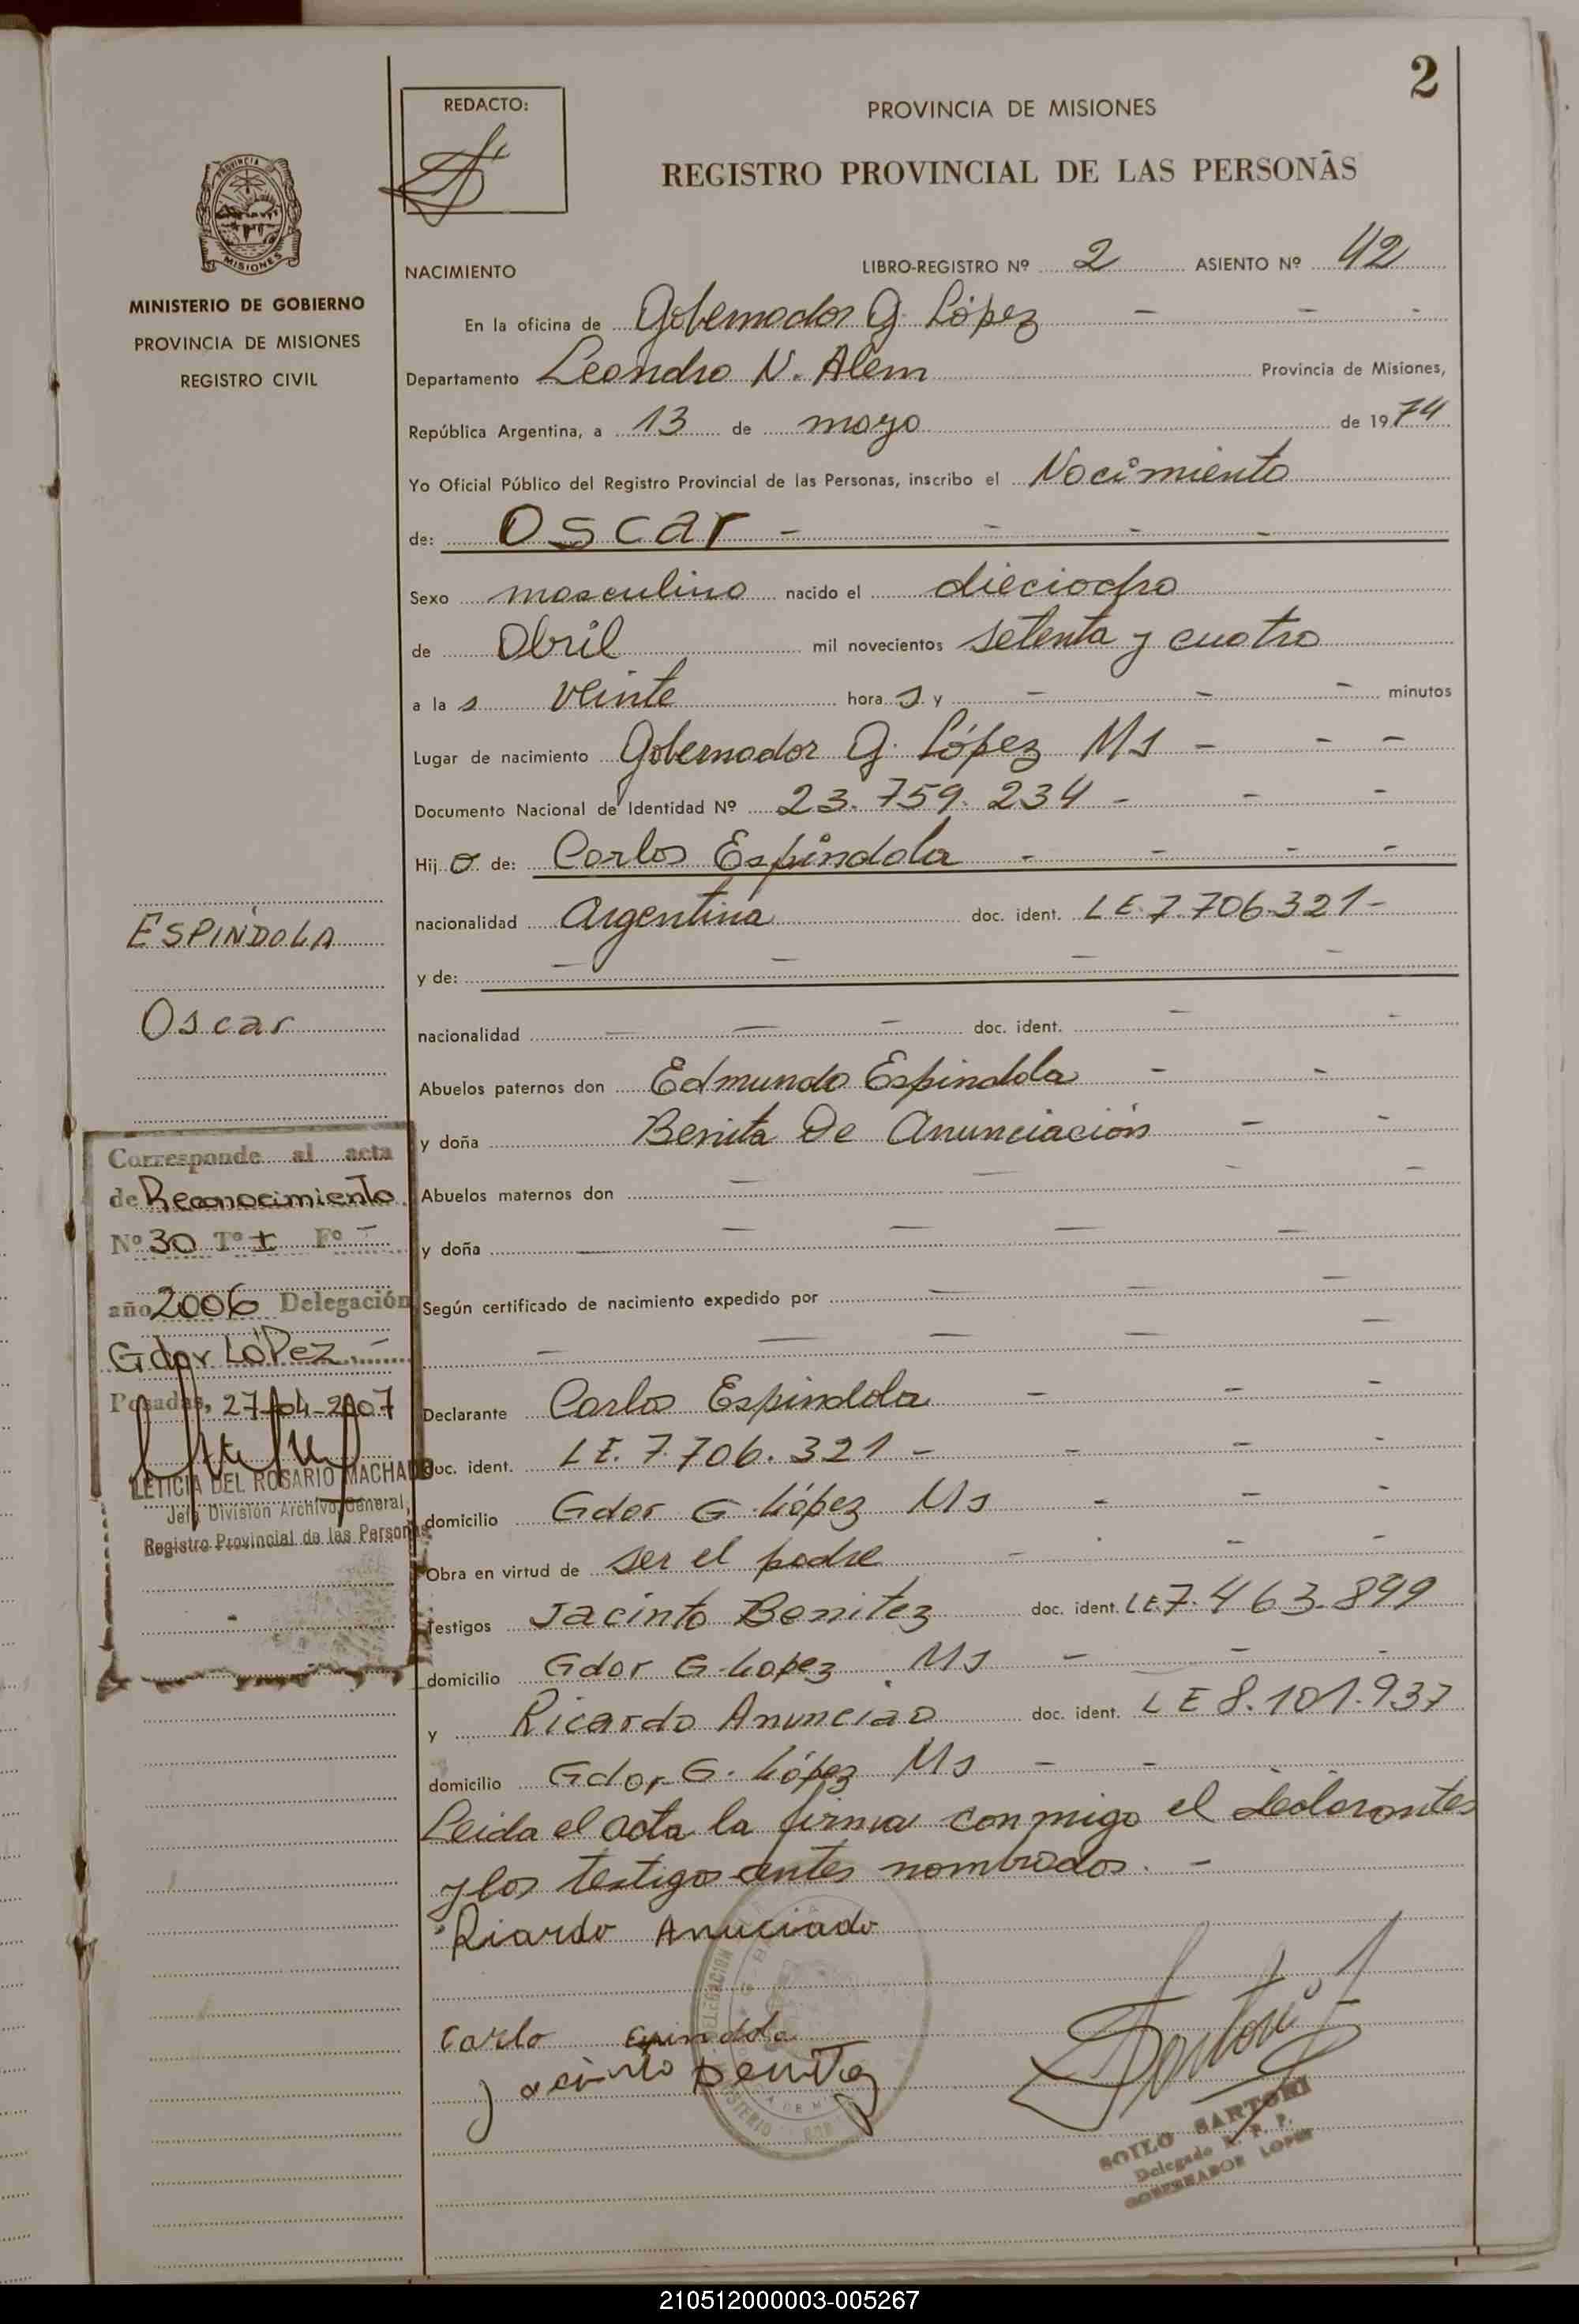 2
REDACTO:
PROVINCIA DE MISIONES
REGISTRO PROVINCIAL DE LAS PERSONAS
PROVINCIA
MISIONES
MINISTERIO DE GOBIERNO
PROVINCIA DE MISIONES
REGISTRO CIVIL
NACIMIENTO LIBRO-REGISTRO Nº 2 ASIENTO Nº 42
En la oficina de Gobernador G. López - - -
Departamento Leandro N. Alem Provincia de Misiones,
República Argentina, a 13 de mayo de 1974
Yo Oficial Público del Registro Provincial de las Personas, inscribo el Nacimiento
de: Oscar - - - -
Sexo masculino nacido el dieciocho
de Abril mil novecientos setenta y cuatro
a la s veinte hora s y - - - minutos
Lugar de nacimiento Gobernador G. López Ms - - -
Documento Nacional de Identidad Nº 23.759.234 - - -
Hij o de: Carlos Espíndola - - - -
nacionalidad Argentina doc. ident. LE.7.706.321-
y de: - - - -
nacionalidad - - - doc. ident. - -
Abuelos paternos don Edmundo Espindola - -
y doña Benita De Anunciación - -
Abuelos maternos don - - - -
y doña - - - - -
Según certificado de nacimiento expedido por - - -
- - - - -
Declarante Carlos Espindola - - -
doc. ident. LE. 7.706.321 - - - -
domicilio Gdor G. López Ms - - -
Obra en virtud de ser el padre - - -
Testigos Jacinto Benitez doc. ident. LE.7.463.899
domicilio Gdor G. Lopez Ms - - -
y Ricardo Anunciao doc. ident. LE 8.101.937
domicilio Gdor G. López Ms - -
Leida el acta la firma conmigo el declarantes
y los testigos antes nombrados. -
Riardo Anuciado
Carlo
SOILO SARTORI
Delegado R. P. P.
GOBERNADOR LOPEZ
ESPÍNDOLA
Oscar
Corresponde al acta
de Reconocimiento
Nº 30 Tº I Fº -
año 2006 Delegación
Gdor LÓPez -
Posadas, 27-04-2007
LETICIA DEL ROSARIO MACHADO
Jefa División Archivo General,
Registro Provincial de las Personas
210512000003-005267